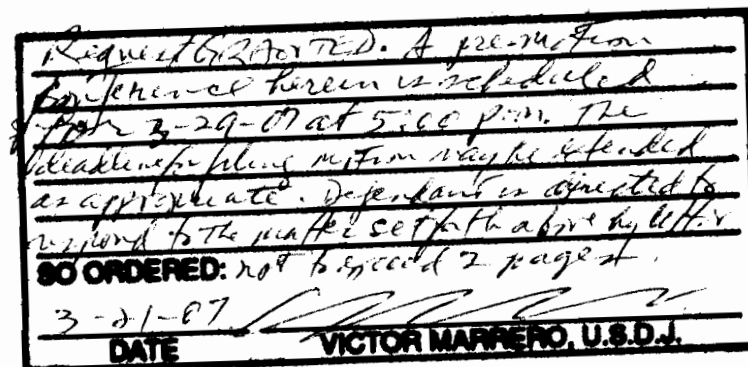 Request GRANTED. A pre-motion
conference herein is scheduled
for 3-29-07 at 5:00 p.m. The
deadline for filing motion may be extended
as appropriate. Defendant is directed to
respond to the matter set forth above by letter
SO ORDERED: not to exceed 2 pages.
3-21-07
DATE VICTOR MARRERO, U.S.D.J.